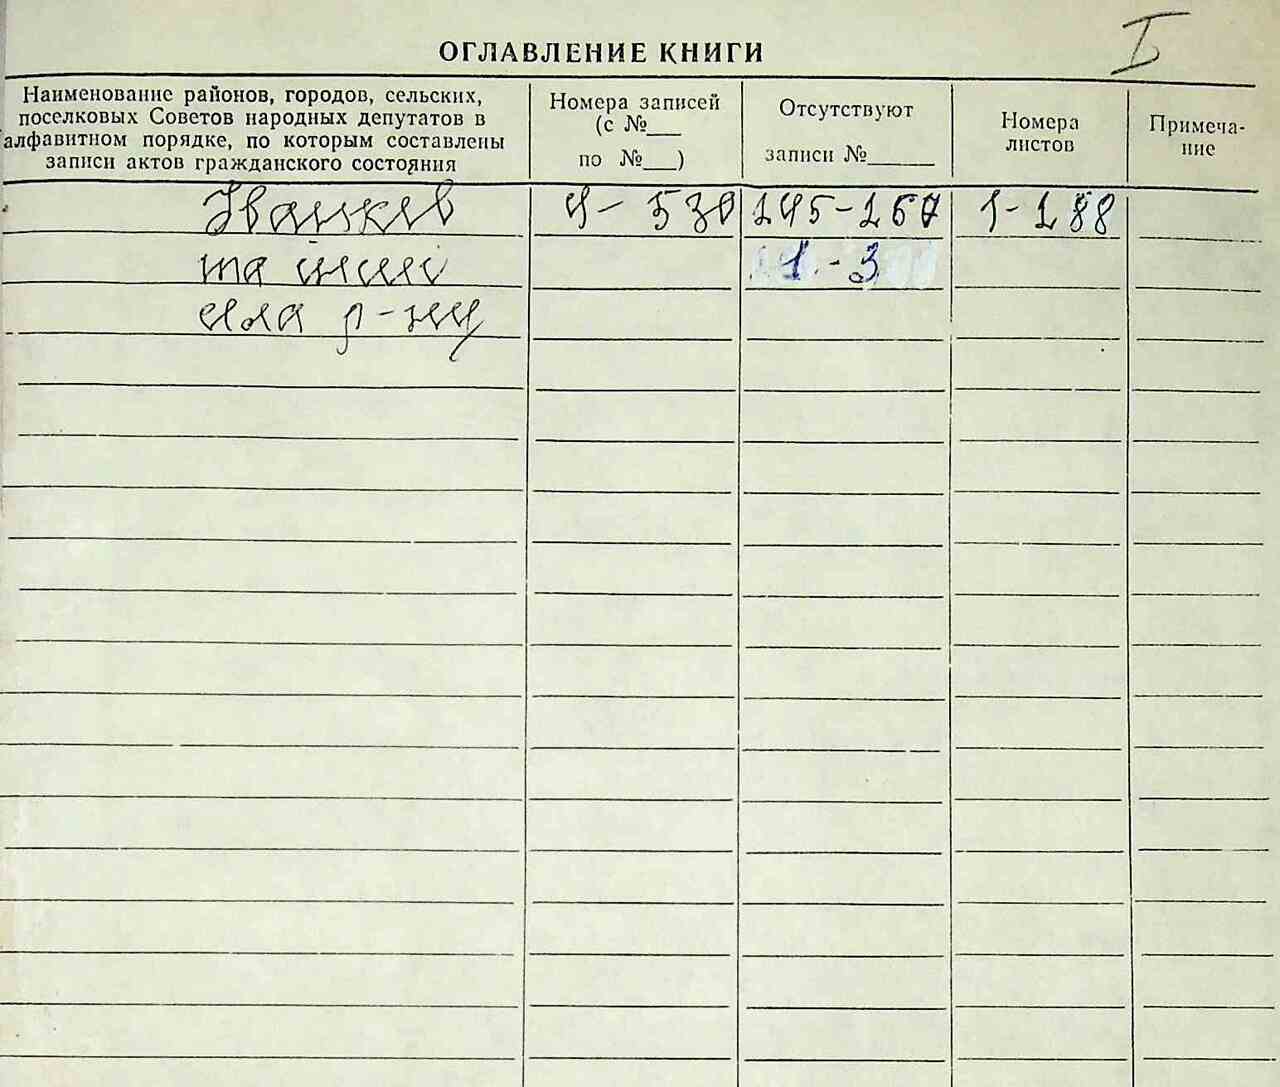 I
ОГЛАВЛЕНИЕ КНИГИ
Наименование районов, городов, сельских,
поселковых Советов народных депутатов в
алфавитном порядке, по которым составлены
записи актов гражданского состояния
Номера записей
(с №___
по №___)
Отсутствуют
записи №______
Номера
листов
Примеча-
ние
Іванків 4-530 245-267 1-188
та інші 1-3
села р-ну